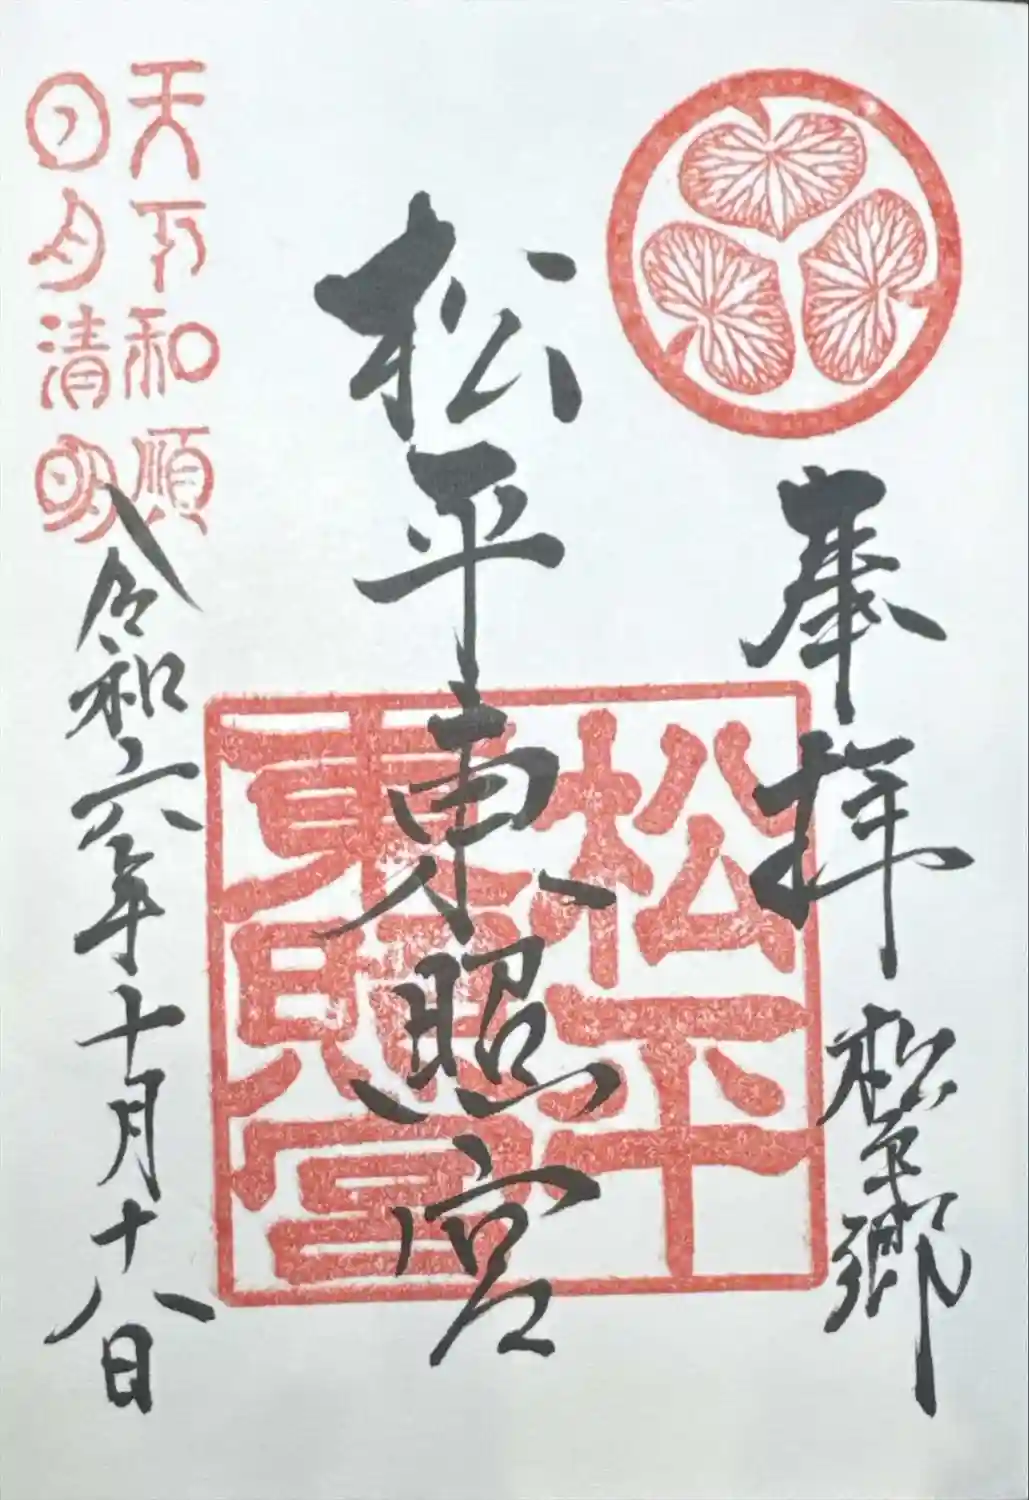 奉拝
松平郷
松平東照宮
松平
東照宮
天下和順
日月清明
令和六年十月十八日